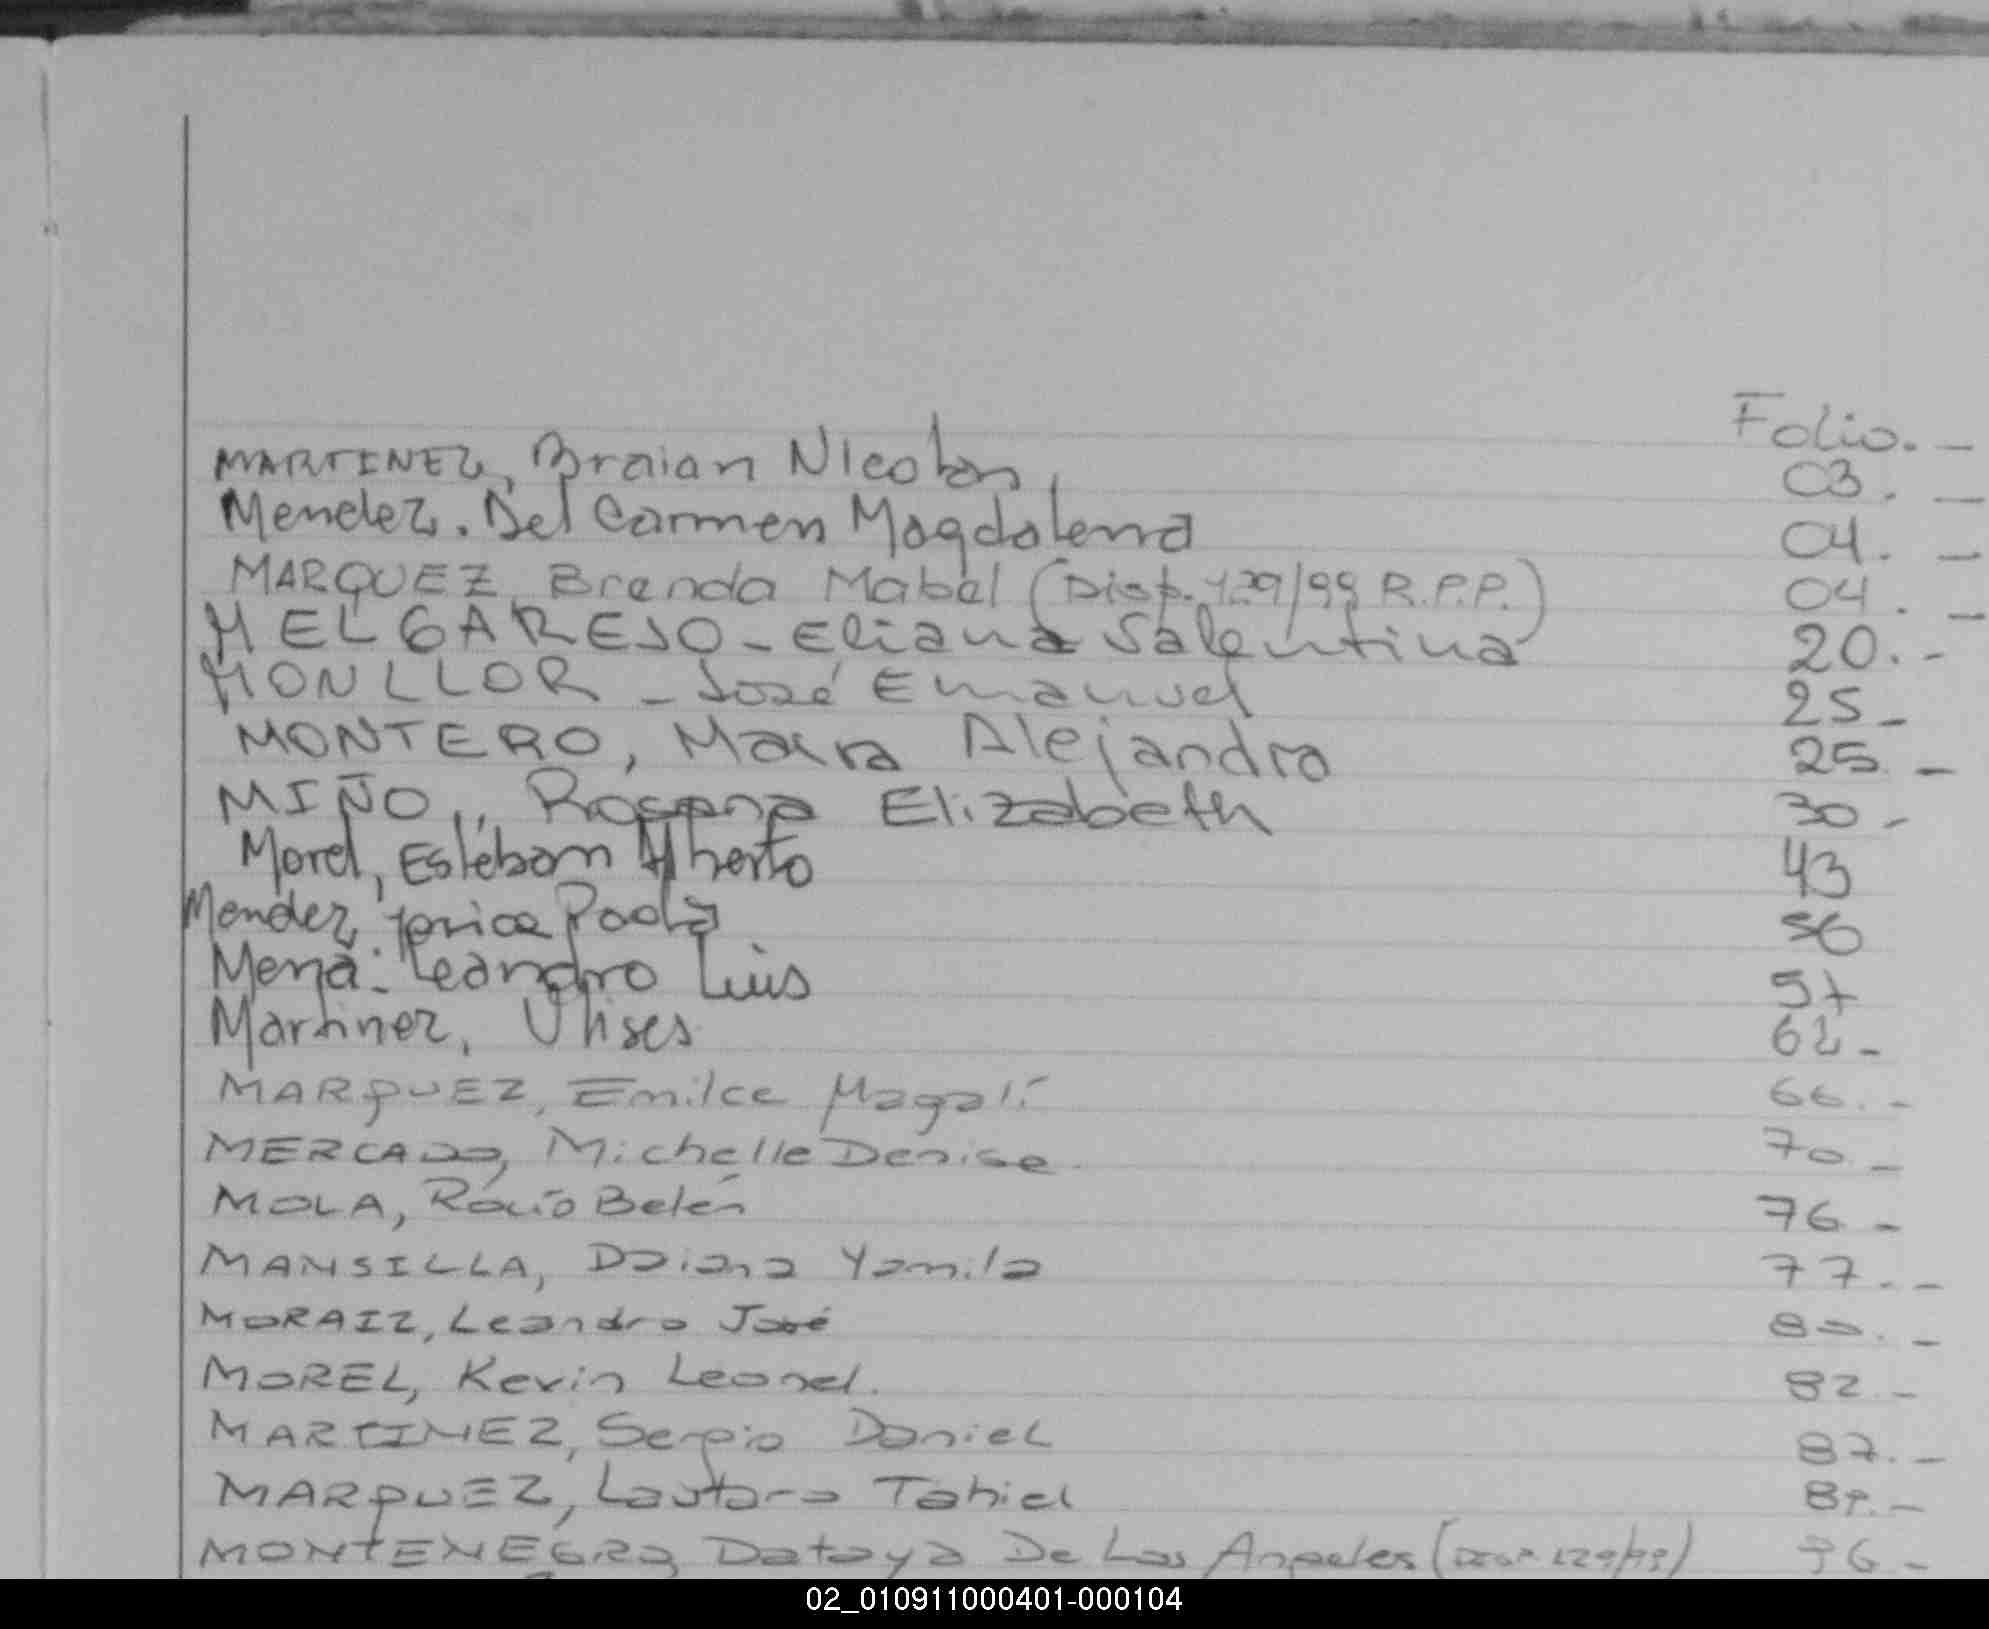 Folio. -
MARTINEZ, Braian Nicolas 03. -
Mendez. Del Carmen Magdalena 04. -
MARQUEZ, Brenda Mabel (Disp. 129/99 R.P.P.) 04. -
MELGAREJO - Eliana Valentina 20. -
MONLLOR - José Emanuel 25 -
MONTERO, Maira Alejandra 25. -
MIÑO, Rosana Elizabeth 30 -
Morel, Esteban Alberto 43
Mendez Paola 56
Mena. Leandro Luis 57
Martinez, Ulises 62 -
MARQUEZ, Emilce Magalí 66. -
MERCADO, Michelle Denise. 70. -
MOLA, Rocío Belén 76 -
MANSILLA, Daiana Yamila 77. -
MORAIZ, Leandro José 80. -
MOREL, Kevin Leonel. 82. -
MARTINEZ, Sergio Daniel 87. -
MARQUEZ, Lautaro Tahiel 89. -
MONTENEGRO De Los Angeles 96 -
02_010911000401-000104